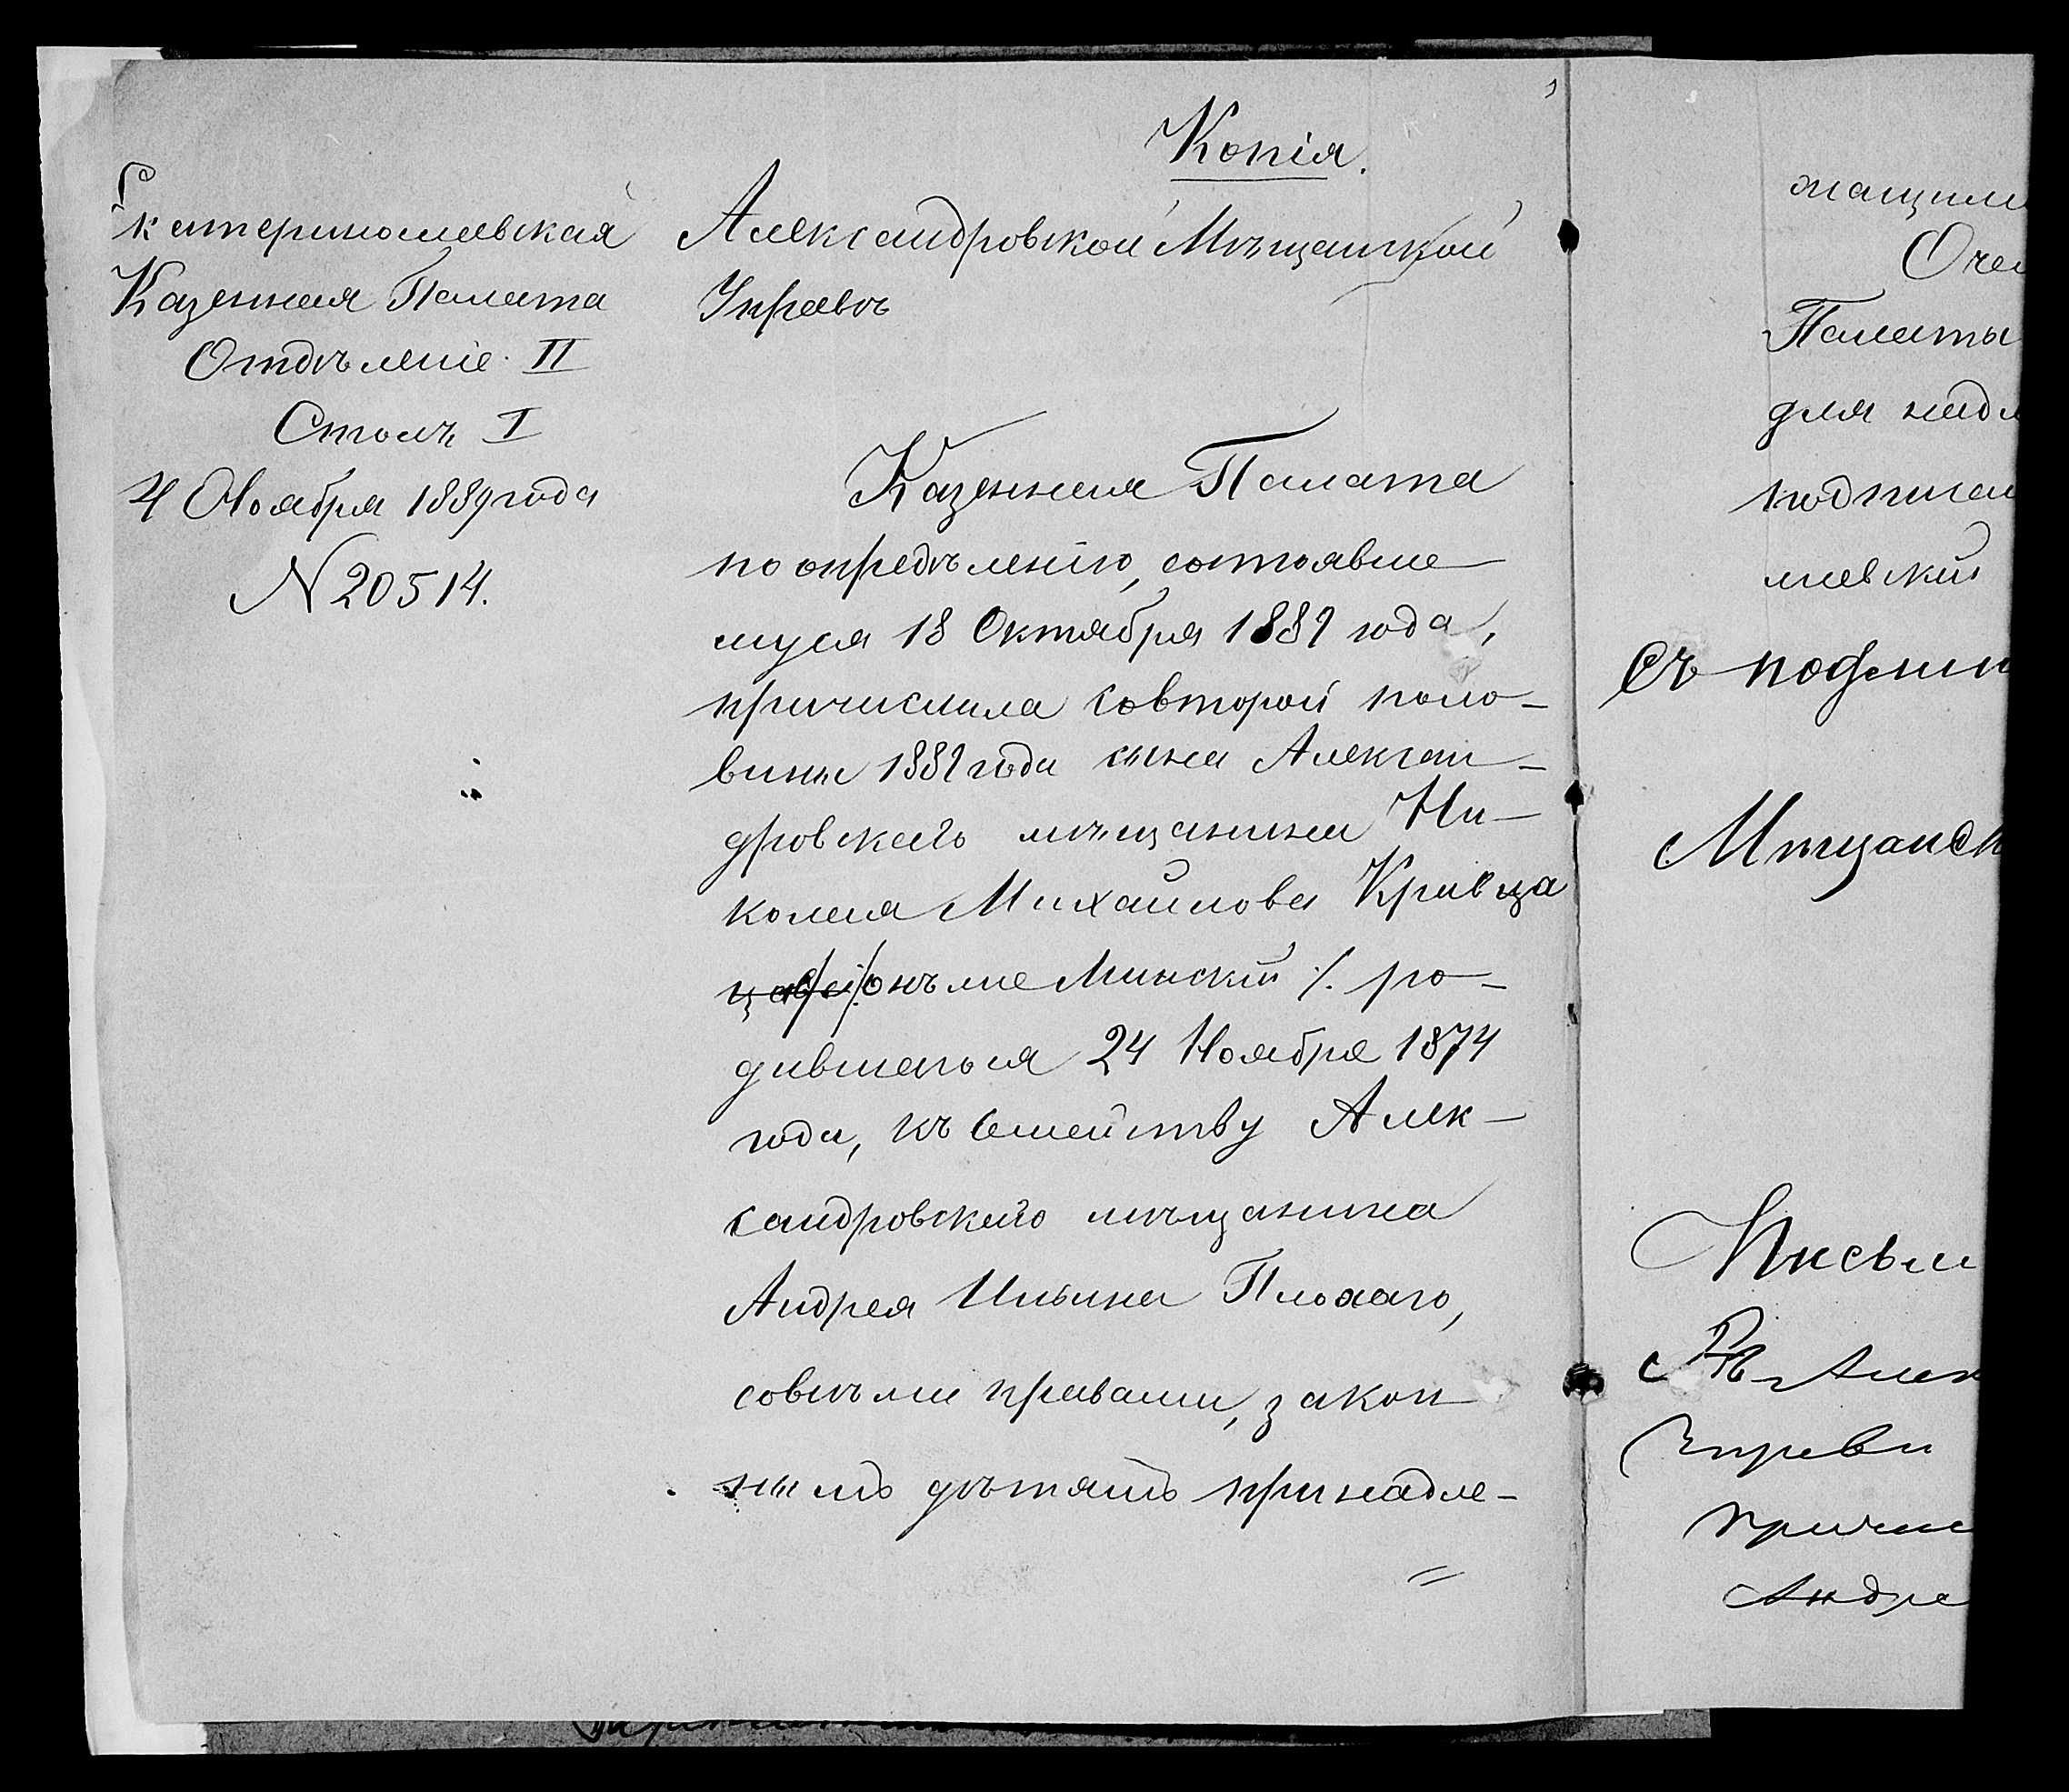 Копія.
Екатеринославская
Казенная Палата
Отдѣленіе II
Столъ I
4 Ноября 1889 года
N 20514.
Александровской Мѣщанской
Управѣ
Казенная Палата
по опредѣленію, состоявше
муся 18 Октября 1889 года,
причислила со второй поло-
вины 1889 года сына Алексан-
дровскаго мѣщанина Ни-
колая Михайлова Кравца
онъ же Минскій ./. ро-
дившагося 24 Ноября 1874
года, къ семейству Алек-
сандровскаго мѣщанина
Андрея Ильина Плохаго,
со всѣми правами, закон
нымъ дѣтямъ принадле-
=
жащим
О чем
Палаты
для над
подписал
славский
Съ подлин
Мѣщанск
Письм
Алек
Управы
причис
Андре